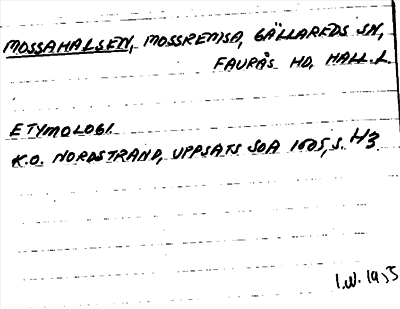 MOSSAHALSEN, MOSSREMSA, GÄLLAREDS SN,
FAURÅS HD, HALL. L.
ETYMOLOGI.
K.O. NORDSTRAND, UPPSATS SOA 1605, S. 43
I.W.